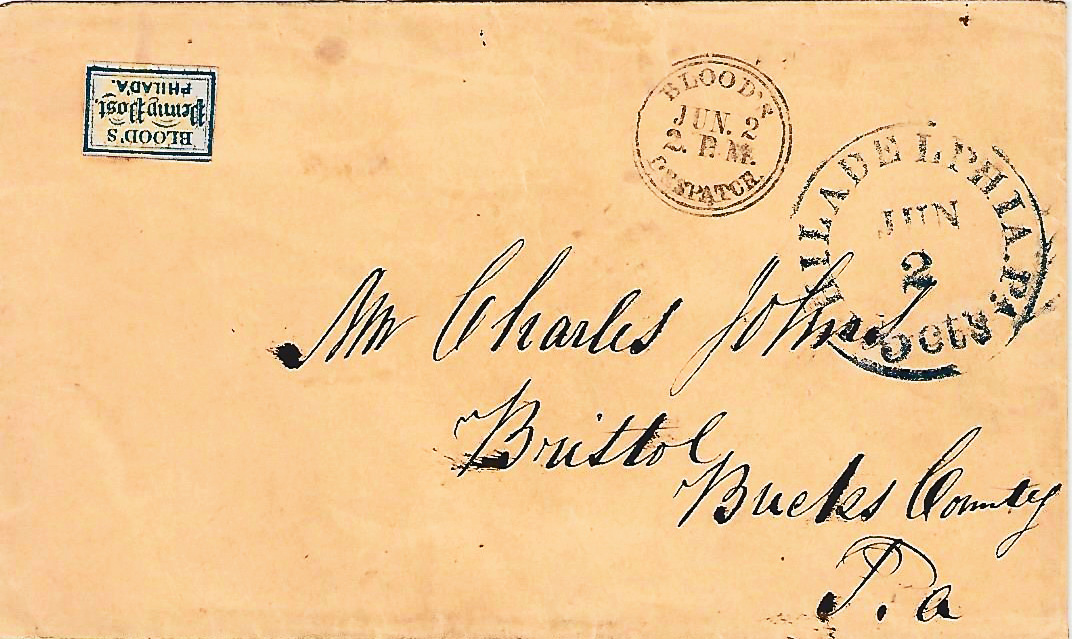 BLOOD'S
Penny Post,
PHILAD'A.
BLOOD'S
JUN. 2
2. P.M.
DESPATCH.
PHILADELPHIA. Pa.
JUN
2
5 cts
Mr Charles Johns
Bristol
Bucks County
Pa